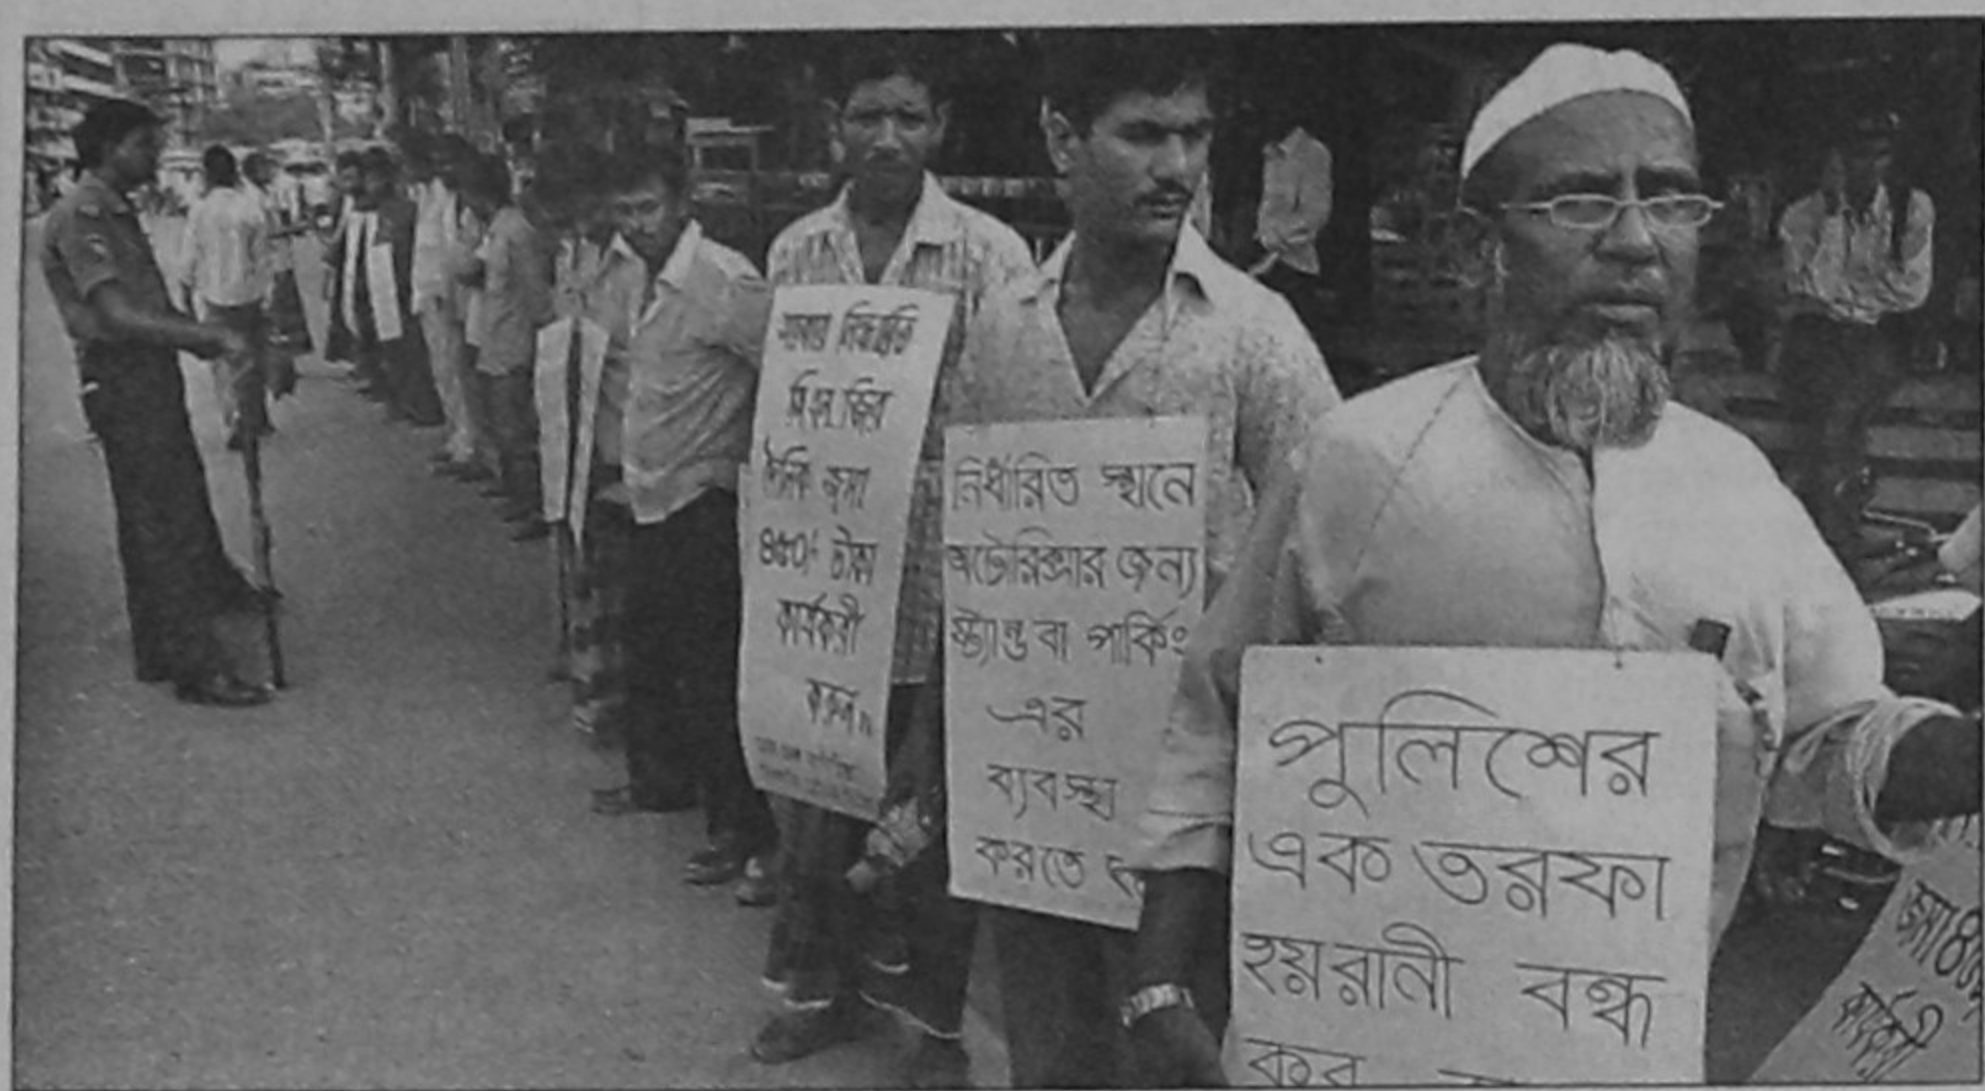 সি.এন.জির
দৈনিক জমা
৪৫০/- টাকা
কার্যকরী
করুন
নির্ধারিত স্থানে
অটোরিক্সার জন্য
স্ট্যান্ড বা পার্কিং
এর
ব্যবস্থা
করতে
পুলিশের
এক তরফা
হয়রানী বন্ধ
কর
জমা
কার্যকরী